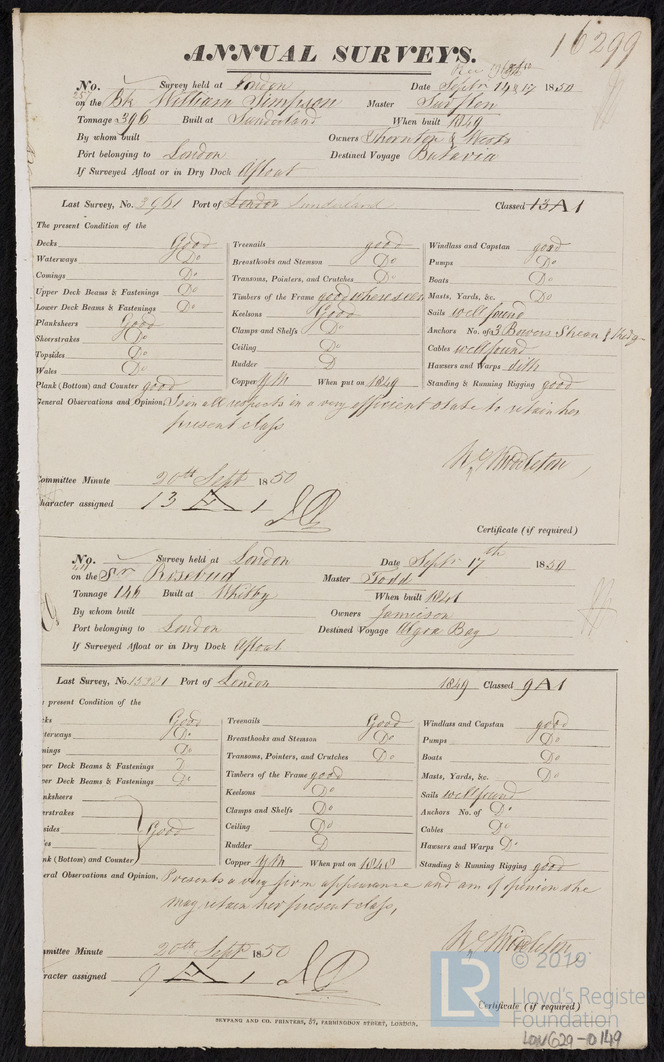 16299
ANNUAL SURVEYS.
No. Survey held at London Date Septr 14 & 17 1850
on the Bk William Simpson Master
Tonnage 396 Built at Sunderland When built 1849
By whom built Owners Thornton & West
Port belonging to London Destined Voyage Batavia
If Surveyed Afloat or in Dry Dock Afloat
Last Survey, No. 3961 Port of London Sunderland Classed 13 A 1
The present Condition of the
Decks Good Treenails good Windlass and Capstan good
Waterways Do Breasthooks and Stemson Do Pumps Do
Comings Do Transoms, Pointers, and Crutches Do Boats Do
Upper Deck Beams & Fastenings Do Timbers of the Frame good where seen Masts, Yards, &c. Do
Lower Deck Beams & Fastenings Do Keelsons Good Sails well found
Planksheers Good Clamps and Shelfs Do Anchors No. of 3 Bowers Stream & Kedge
Sheerstrakes Do Ceiling Do Cables well found
Topsides Do Rudder D Hawsers and Warps ditto
Wales Do Copper YM When put on 1849 Standing & Running Rigging good
Plank (Bottom) and Counter good
General Observations and Opinion, Is in all respects in a very efficient state to retain her
present class
W. Middleton
Committee Minute 20th Sept 1850
Character assigned 13 A 1
Certificate (if required)
No. Survey held at London Date Septr 17th 1850
on the Sr Rosebud Master Todd
Tonnage 146 Built at Whitby When built 1841
By whom built Owners Jamieson
Port belonging to London Destined Voyage Algoa Bay
If Surveyed Afloat or in Dry Dock Afloat
Last Survey, No. 15321 Port of London 1849 Classed 9 A 1
present Condition of the
cks Good Treenails Good Windlass and Capstan good
terways Do Breasthooks and Stemson Do Pumps Do
mings Do Transoms, Pointers, and Crutches Do Boats Do
per Deck Beams & Fastenings D Timbers of the Frame good Masts, Yards, &c. Do
er Deck Beams & Fastenings Do Keelsons Do Sails well found
nksheers Clamps and Shelfs Do Anchors No. of Do
erstrakes Ceiling Do Cables Do
sides Good Rudder D Hawsers and Warps Do
es Copper YM When put on 1848 Standing & Running Rigging good
nk (Bottom) and Counter
eral Observations and Opinion, Presents a very firm appearance and am of opinion she
may retain her present class,
W. Middleton
mmittee Minute 20th Sept 1850
racter assigned 9 A 1
Certificate (if required)
SEYFANG AND CO. PRINTERS, 57, FARRINGDON STREET, LONDON.
LR © 2019
Lloyd's Register
Foundation
LON629-0149